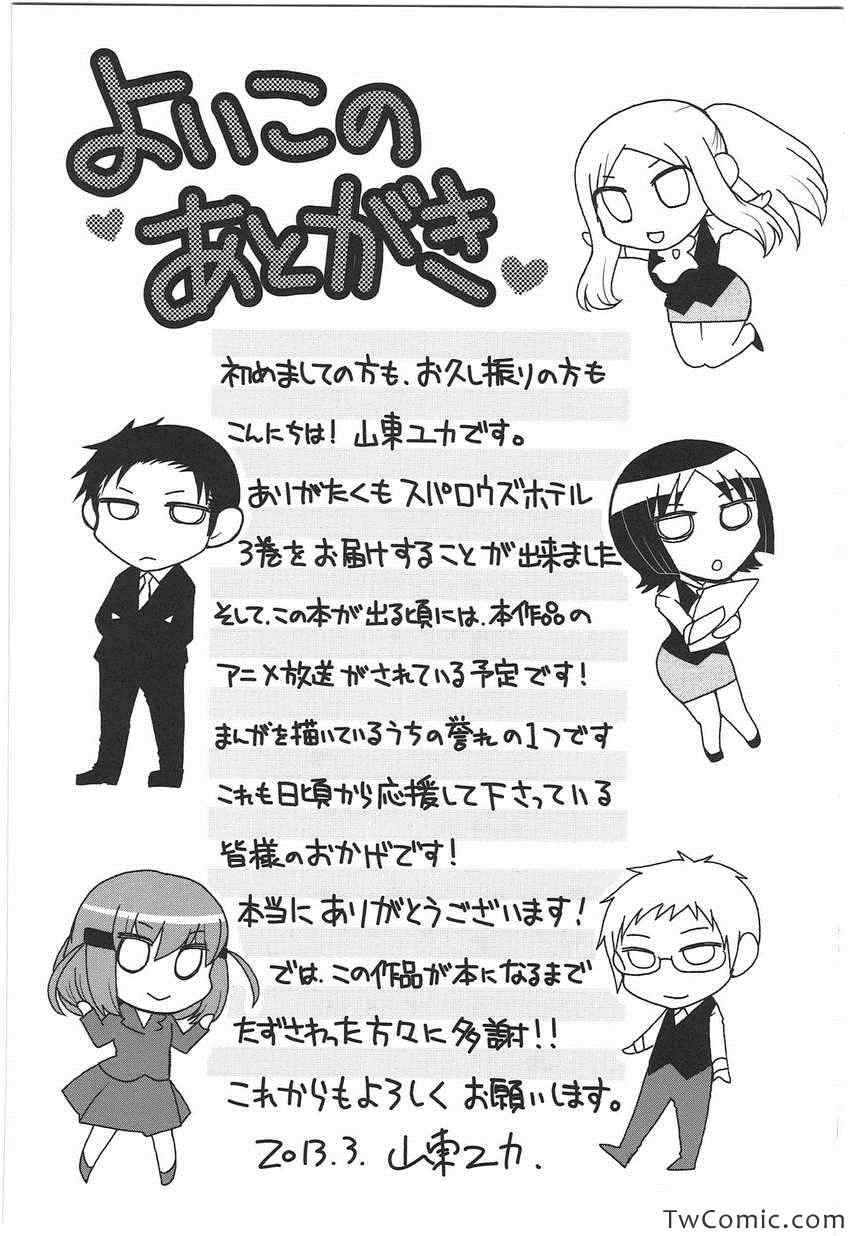 よいこの
あとがき
初めましての方も、お久し振りの方も
こんにちは！山東ユカです。
ありがたくもスパロウズホテル
3巻をお届けすることが出来ました
そして、この本が出る頃には、本作品の
アニメ放送がされている予定です！
まんがを描いているうちの誉れの1つです
これも日頃から応援して下さっている
皆様のおかげです！
本当にありがとうございます！
では、この作品が本になるまで
たずさわった方々に多謝！！
これからもよろしくお願いします。
2013.3. 山東ユカ.
TwComic.com